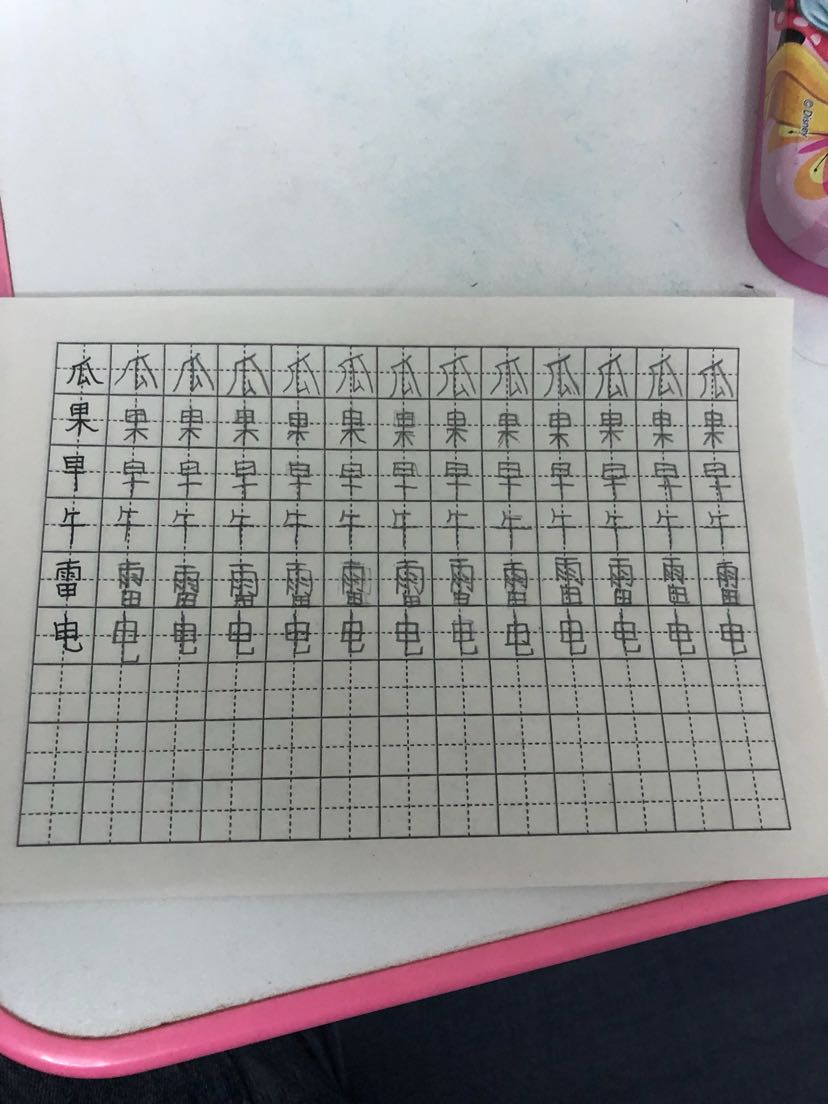 © Disney
瓜瓜瓜瓜瓜瓜瓜瓜瓜瓜瓜瓜瓜
果果果果果果果果果果果果果
早早早早早早早早早早早早早
午午午午午午午午午午午午午
雷雷雷雷雷雷雷雷雷雷雷雷雷
电电电电电电电电电电电电电